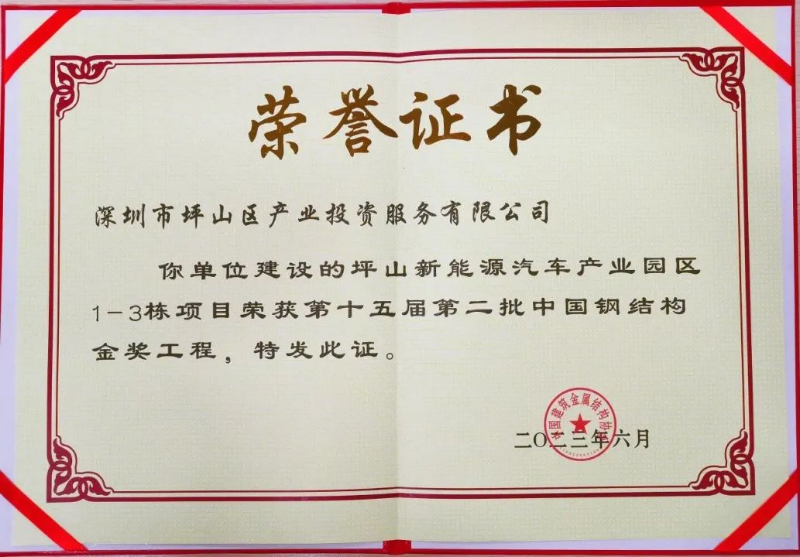 荣誉证书
深圳市坪山区产业投资服务有限公司
你单位建设的坪山新能源汽车产业园区
1-3栋项目荣获第十五届第二批中国钢结构
金奖工程，特发此证。
中国建筑金属结构协会
二〇二三年六月